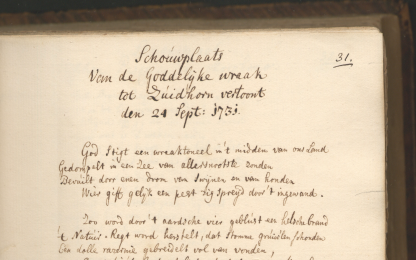 31.
Schouwplaats
Van de Goddelijke wraak
tot Zuidhorn vertoont
den 24 Sept: 1731.
God stigt een wraaktoneel in't midden van ons Land
Gedompelt in een Zee van allersnootste zonden
Bevuilt door enen drom van Swijnen en van honden
Wier gift gelijk een pest zig spreyd door't ingewand.
Zou word door't aardsche vier geblust een helsche brand
't Natuir-Regt word herstelt, dat stomme
Een dolle razernie gebreidelt vol van vonden,